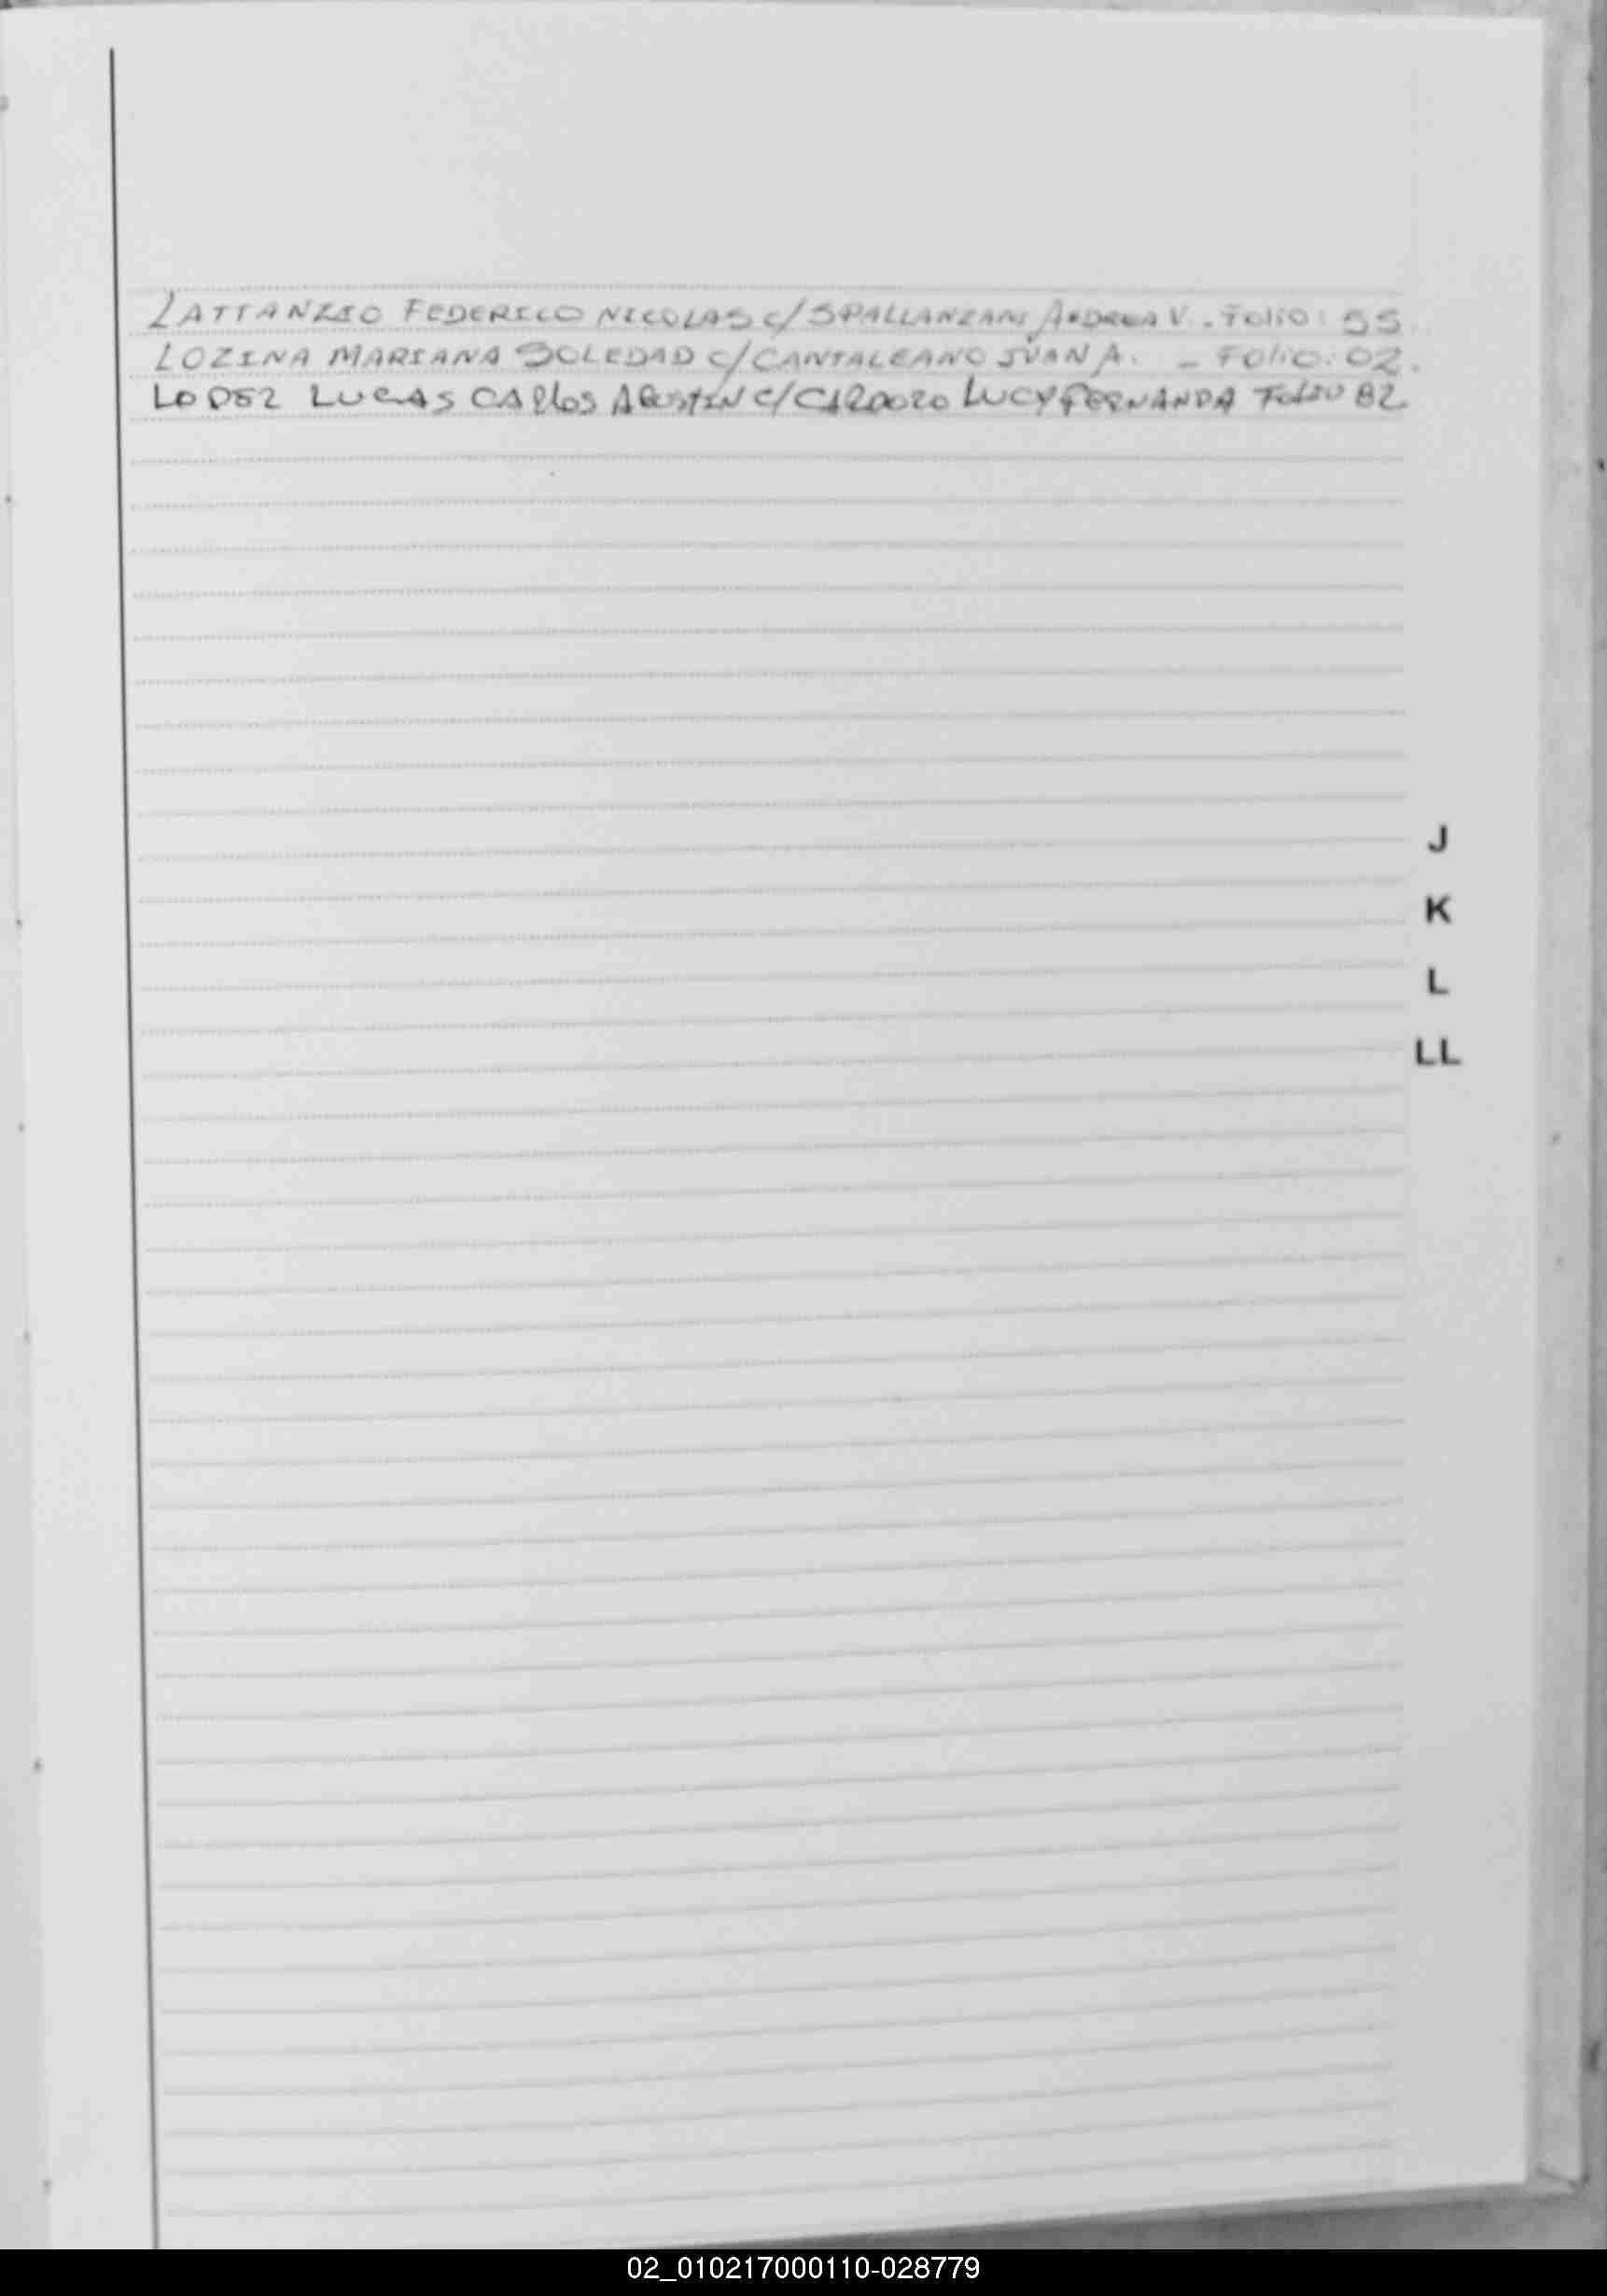 LATTANZIO FEDERICO NICOLAS C/ SPALLANZANI ANDREA V. - FOLIO: 55
LOZINA MARIANA SOLEDAD C/ CANTALEANO JUAN A. - FOLIO: 02.
LOPEZ LUCAS CARLOS AGUSTIN C/ CARDOZO LUCY FERNANDA FOLIO 82
J
K
L
LL
02_010217000110-028779